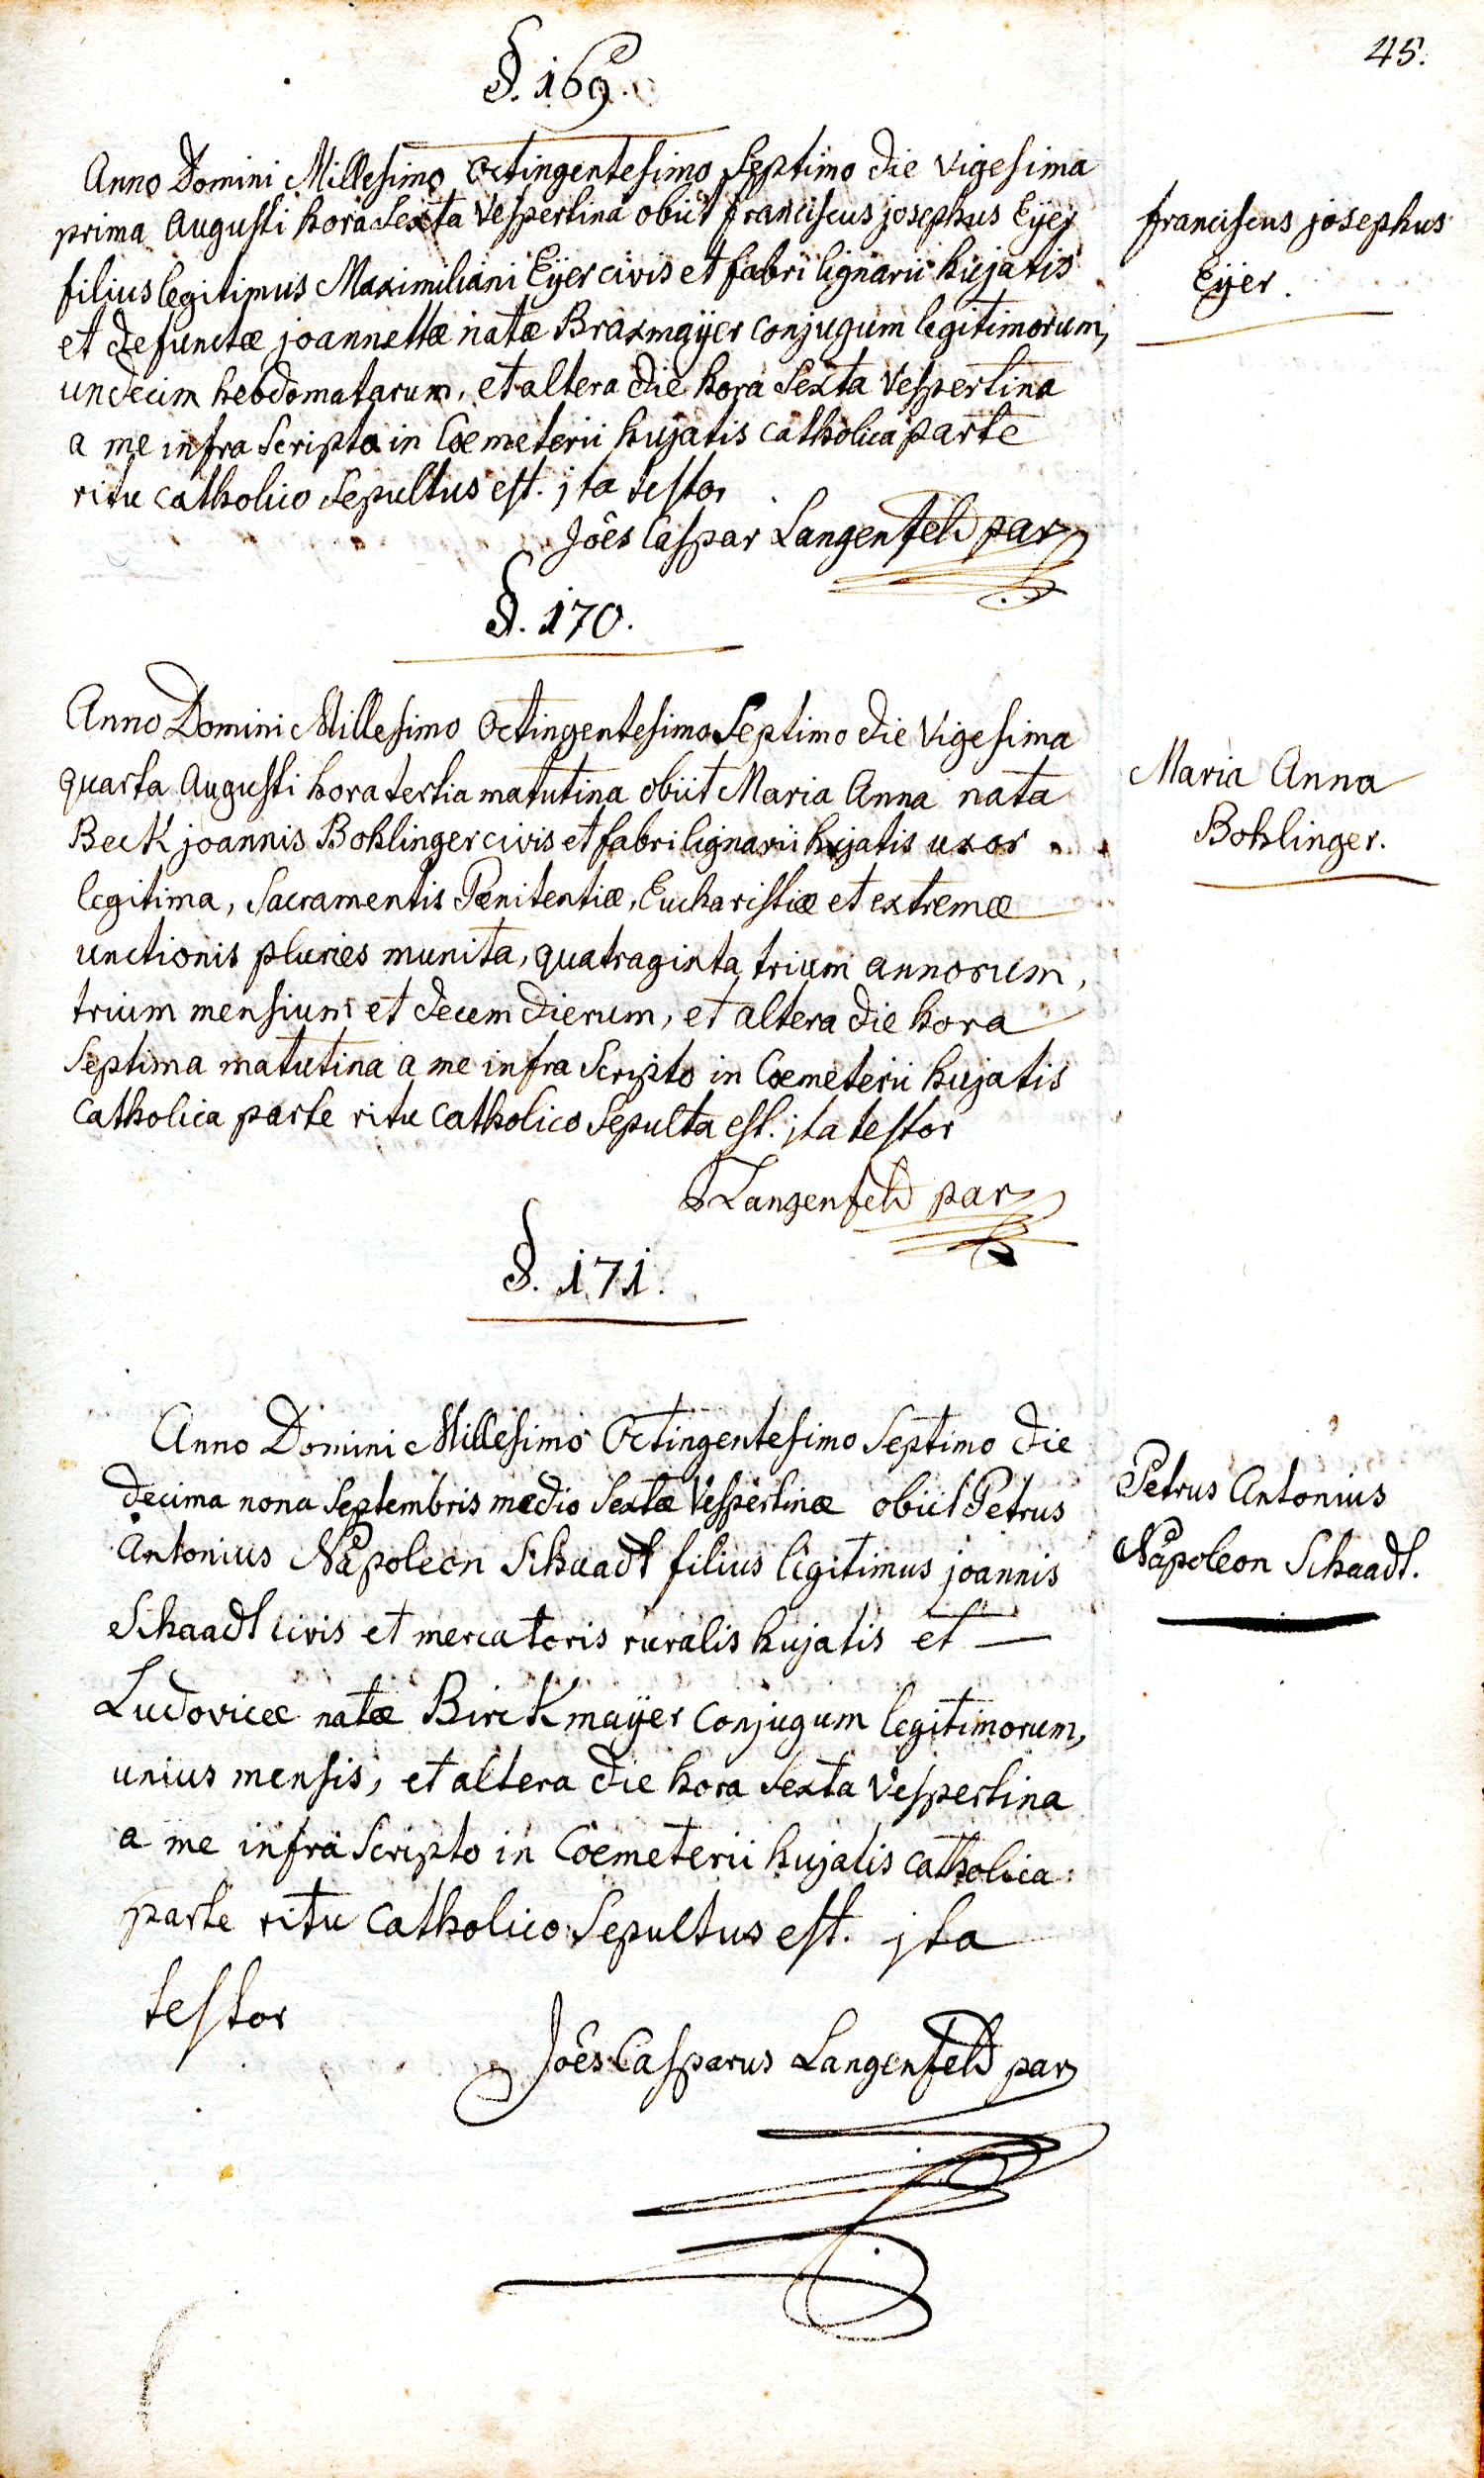 45.
§. 169.
Anno Domini Millesimo Octingentesimo Septimo die vigesima
prima Augusti hora Sexta Vespertina obiit franciscus josephus Eÿer
filius legitimus Maximiliani Eÿer civis et fabri lignarii hujatis
et defunctæ joannettæ natæ Braxmaÿer conjugum legitimorum,
undecim hebdomatarum, et altera die hora Sexta Vespertina
a me infra Scripto in Coemeterii hujatis catholica parte
ritu catholico Sepultus est. jta testor
Joês Caspar Langenfeld par
franciscus josephus
Eÿer.
§. 170.
Anno Domini Millesimo Octingentesimo Septimo die Vigesima
quarta Augusti hora tertia matutina obiit Maria Anna nata
Beck joannis Bohlinger civis et fabri lignarii hujatis uxor
legitima, Sacramentis Pœnitentiæ, Eucharistiæ et extremæ
unctionis pluries munita, quatraginta trium annorum,
trium mensium et decem dierum, et altera die hora
Septima matutina a me infra Scripto in Coemeterii hujatis
catholica parte ritu catholico Sepulta est. jta testor
Langenfeld par
Maria Anna
Bohlinger.
§. 171.
Anno Domini Millesimo Octingentesimo Septimo die
decima nona Septembris medio Sextæ Vespertinæ obiit Petrus
Antonius Napoleon Schaadt filius legitimus joannis
Schaadt civis et mercatoris ruralis hujatis et —
Ludovicæ natæ Birckmaÿer conjugum legitimorum,
unius mensis, et altera die hora Sexta Vespertina
a me infra Scripto in Coemeterii hujatis catholica
parte ritu catholico Sepultus est. jta
testor
Joês Casparus Langenfeld par
Petrus Antonius
Napoleon Schaadt.